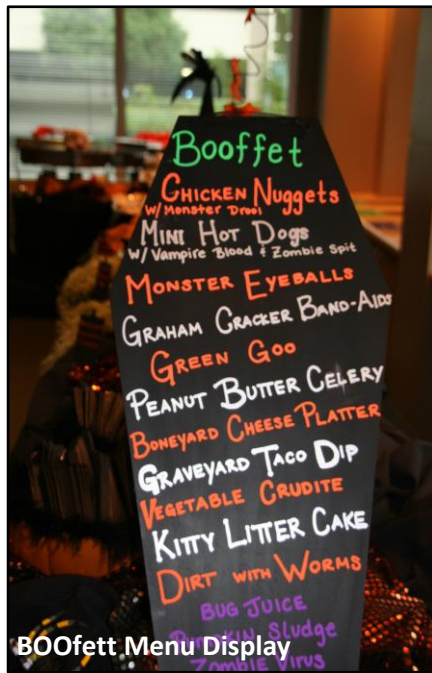 Booffet
CHICKEN NUGGETS
W/ Monster Drool
MINI HOT DOGS
W/ Vampire Blood & Zombie Spit
MONSTER EYEBALLS
GRAHAM CRACKER BAND-AIDS
GREEN GOO
PEANUT BUTTER CELERY
BONEYARD CHEESE PLATTER
GRAVEYARD TACO DIP
VEGETABLE CRUDITE
KITTY LITTER CAKE
DIRT WITH WORMS
BUG JUICE
Pumpkin Sludge
Zombie Virus
BOOfett Menu Display